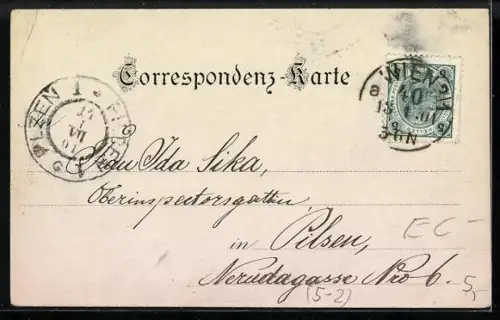 Correspondenz-Karte
WIEN
40
PLZEŇ 1
PILSEN 1
Frau Ida Sika,
Oberinspectorsgattin,
in Pilsen,
Nerudagasse Nro 6.
EC-
5,-
(5-2)